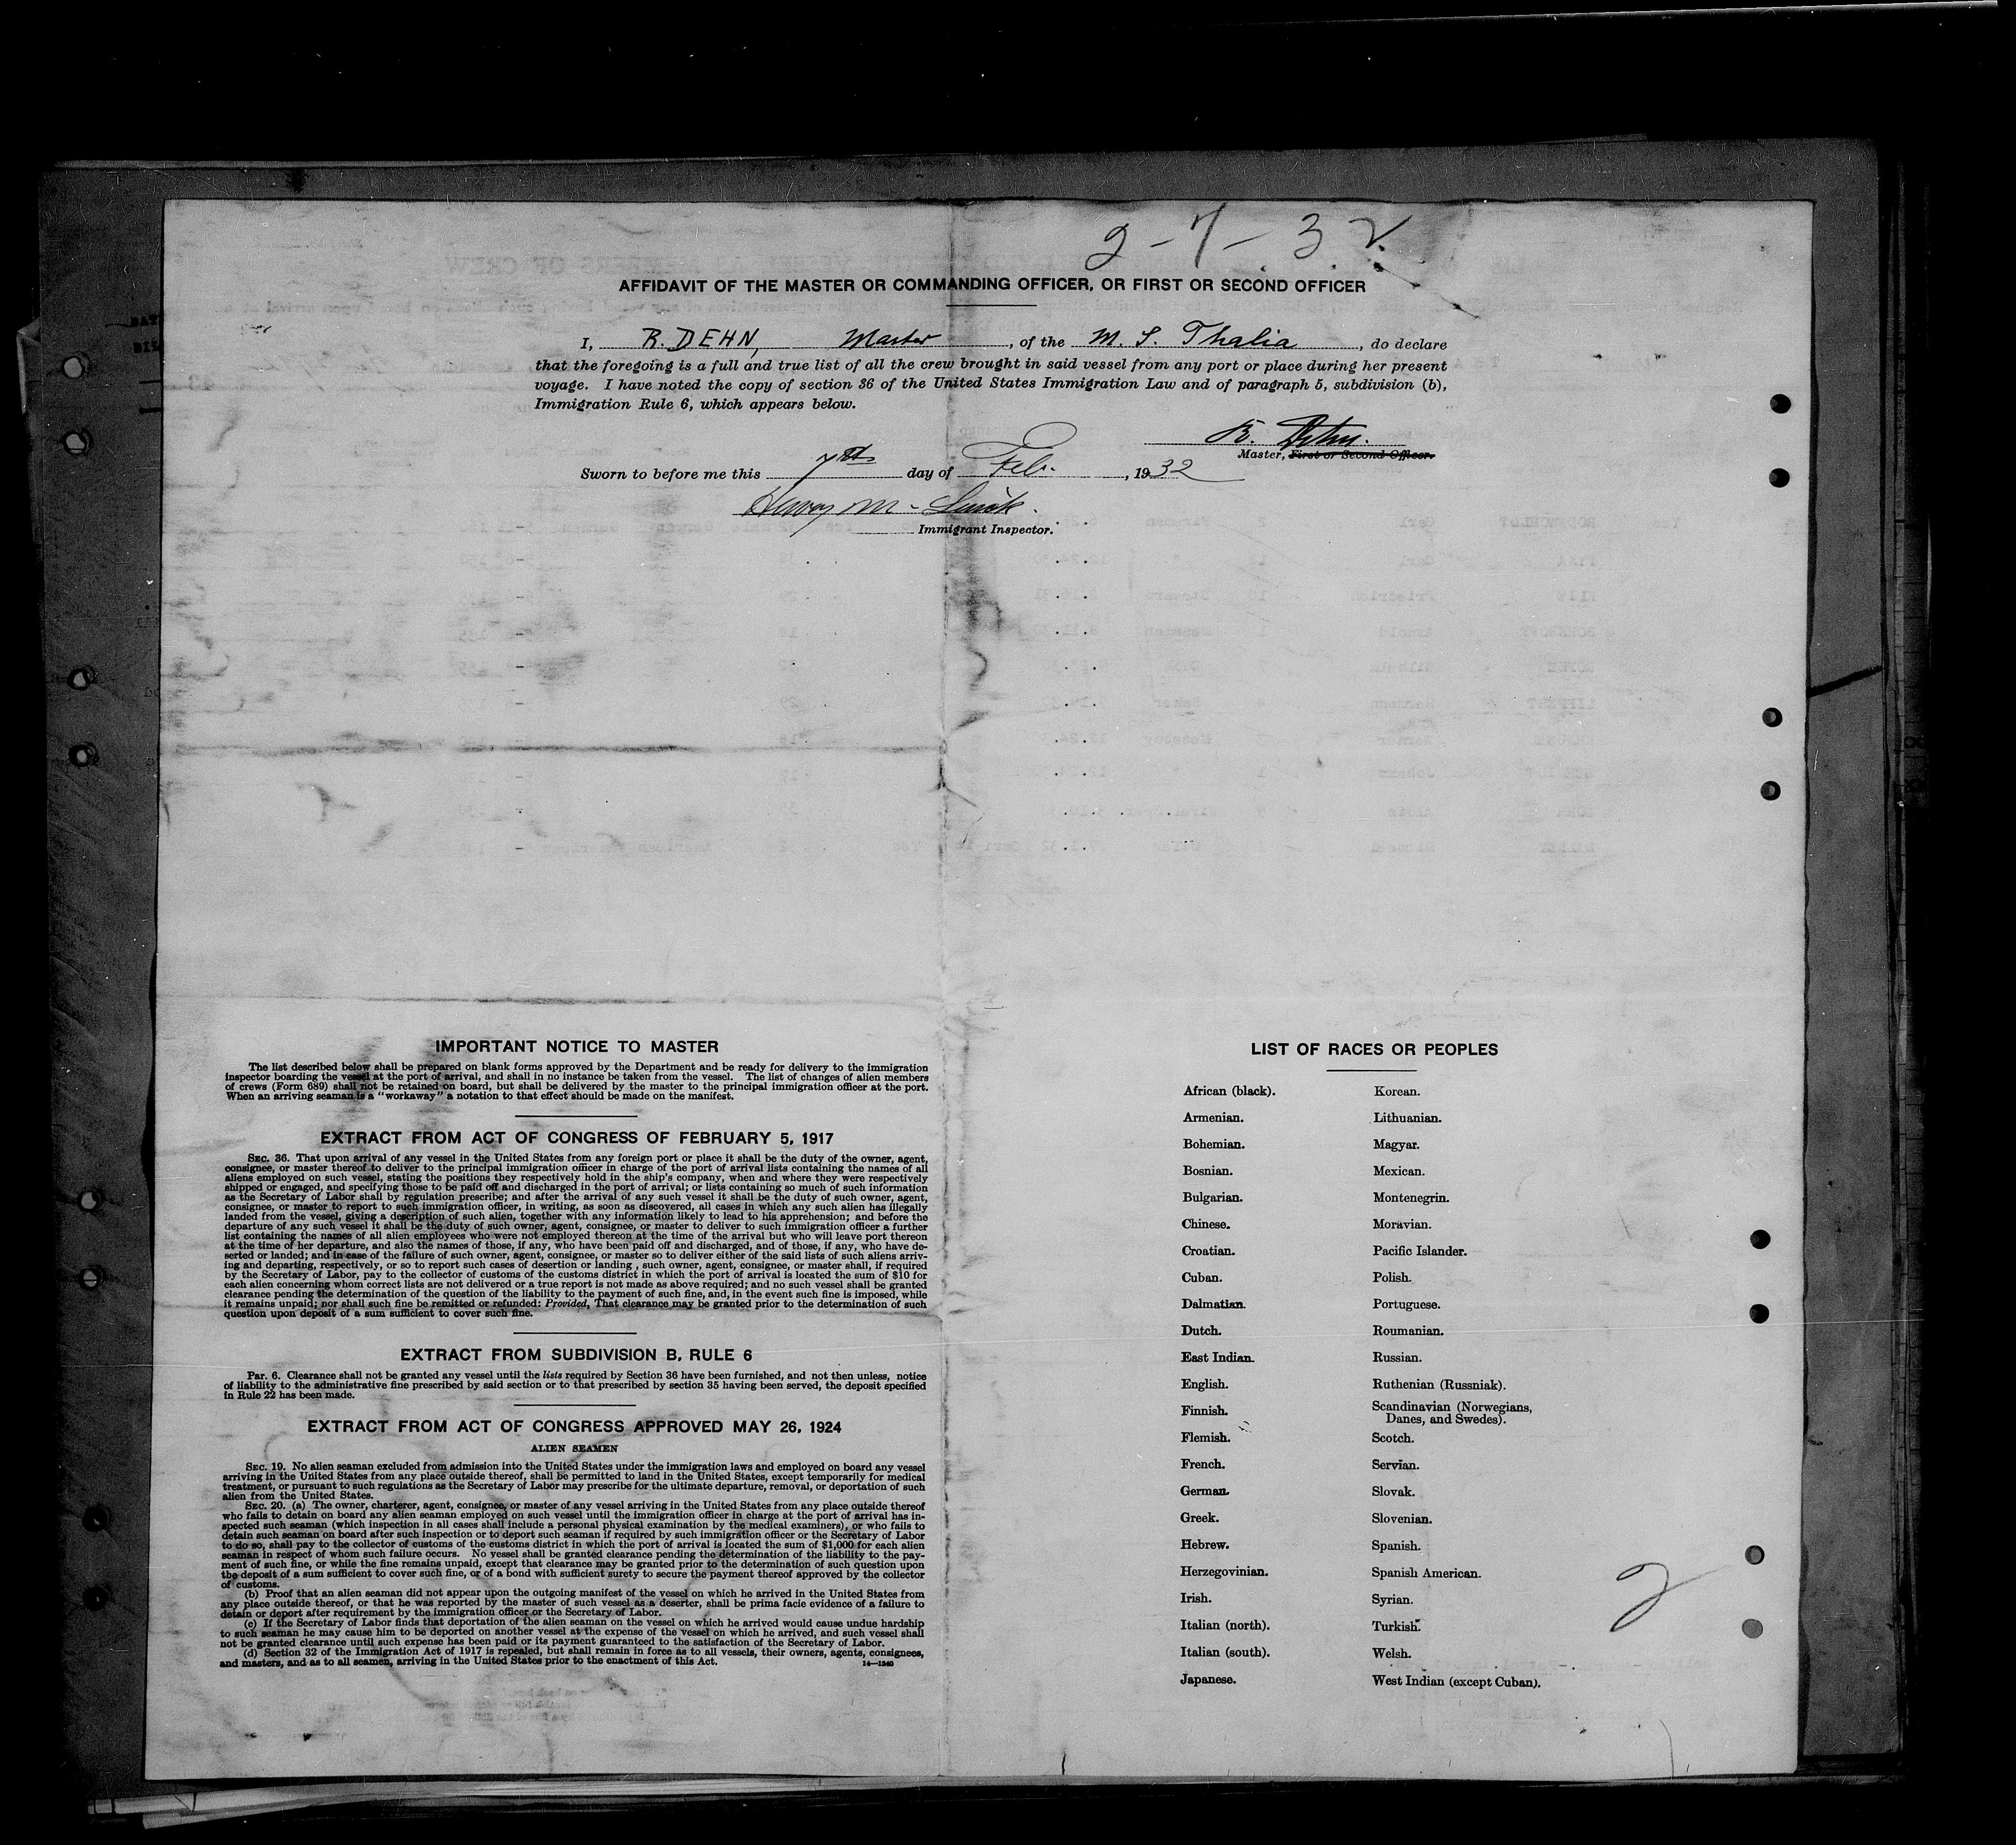 2-7-32
AFFIDAVIT OF THE MASTER OR COMMANDING OFFICER, OR FIRST OR SECOND OFFICER
I, R. DEHN, Master, of the M. S. Thalia, do declare
that the foregoing is a full and true list of all the crew brought in said vessel from any port or place during her present
voyage. I have noted the copy of section 36 of the United States Immigration Law and of paragraph 5, subdivision (b),
Immigration Rule 6, which appears below.
R. Dehn.
Master, First or Second Officer.
Sworn to before me this 7th day of Feb. , 1932
Immigrant Inspector.
IMPORTANT NOTICE TO MASTER
The list described below shall be prepared on blank forms approved by the Department and be ready for delivery to the immigration
inspector boarding the vessel at the port of arrival, and shall in no instance be taken from the vessel. The list of changes of alien members
of crews (Form 689) shall not be retained on board, but shall be delivered by the master to the principal immigration officer at the port.
When an arriving seaman is a "workaway" a notation to that effect should be made on the manifest.
EXTRACT FROM ACT OF CONGRESS OF FEBRUARY 5, 1917
SEC. 36. That upon arrival of any vessel in the United States from any foreign port or place it shall be the duty of the owner, agent,
consignee, or master thereof to deliver to the principal immigration officer in charge of the port of arrival lists containing the names of all
aliens employed on such vessel, stating the positions they respectively hold in the ship's company, when and where they were respectively
shipped or engaged, and specifying those to be paid off and discharged in the port of arrival; or lists containing so much of such information
as the Secretary of Labor shall by regulation prescribe; and after the arrival of any such vessel it shall be the duty of such owner, agent,
consignee, or master to report to such immigration officer, in writing, as soon as discovered, all cases in which any such alien has illegally
landed from the vessel, giving a description of such alien, together with any information likely to lead to his apprehension; and before the
departure of any such vessel it shall be the duty of such owner, agent, consignee, or master to deliver to such immigration officer a further
list containing the names of all alien employees who were not employed thereon at the time of the arrival but who will leave port thereon
at the time of her departure, and also the names of those, if any, who have been paid off and discharged, and of those, if any, who have de-
serted or landed; and in case of the failure of such owner, agent, consignee, or master so to deliver either of the said lists of such aliens arriv-
ing and departing, respectively, or so to report such cases of desertion or landing , such owner, agent, consignee, or master shall, if required
by the Secretary of Labor, pay to the collector of customs of the customs district in which the port of arrival is located the sum of $10 for
each alien concerning whom correct lists are not delivered or a true report is not made as above required; and no such vessel shall be granted
clearance pending the determination of the question of the liability to the payment of such fine, and, in the event such fine is imposed, while
it remains unpaid; nor shall such fine be remitted or refunded: Provided, That clearance may be granted prior to the determination of such
question upon deposit of a sum sufficient to cover such fine.
EXTRACT FROM SUBDIVISION B, RULE 6
Par. 6. Clearance shall not be granted any vessel until the lists required by Section 36 have been furnished, and not then unless, notice
of liability to the administrative fine prescribed by said section or to that prescribed by section 35 having been served, the deposit specified
in Rule 22 has been made.
EXTRACT FROM ACT OF CONGRESS APPROVED MAY 26, 1924
ALIEN SEAMEN
SEC. 19. No alien seaman excluded from admission into the United States under the immigration laws and employed on board any vessel
arriving in the United States from any place outside thereof, shall be permitted to land in the United States, except temporarily for medical
treatment, or pursuant to such regulations as the Secretary of Labor may prescribe for the ultimate departure, removal, or deportation of such
alien from the United States.
SEC. 20. (a) The owner, charterer, agent, consignee, or master of any vessel arriving in the United States from any place outside thereof
who fails to detain on board any alien seaman employed on such vessel until the immigration officer in charge at the port of arrival has in-
spected such seaman (which inspection in all cases shall include a personal physical examination by the medical examiners), or who fails to
detain such seaman on board after such inspection or to deport such seaman if required by such immigration officer or the Secretary of Labor
to do so, shall pay to the collector of customs of the customs district in which the port of arrival is located the sum of $1,000 for each alien
seaman in respect of whom such failure occurs. No vessel shall be granted clearance pending the determination of the liability to the pay-
ment of such fine, or while the fine remains unpaid, except that clearance may be granted prior to the determination of such question upon
the deposit of a sum sufficient to cover such fine, or of a bond with sufficient surety to secure the payment thereof approved by the collector
of customs.
(b) Proof that an alien seaman did not appear upon the outgoing manifest of the vessel on which he arrived in the United States from
any place outside thereof, or that he was reported by the master of such vessel as a deserter, shall be prima facie evidence of a failure to
detain or deport after requirement by the immigration officer or the Secretary of Labor.
(c) If the Secretary of Labor finds that deportation of the alien seaman on the vessel on which he arrived would cause undue hardship
to such seaman he may cause him to be deported on another vessel at the expense of the vessel on which he arrived, and such vessel shall
not be granted clearance until such expense has been paid or its payment guaranteed to the satisfaction of the Secretary of Labor.
(d) Section 32 of the Immigration Act of 1917 is repealed, but shall remain in force as to all vessels, their owners, agents, consignees,
and masters, and as to all seamen, arriving in the United States prior to the enactment of this Act.
14—1240
LIST OF RACES OR PEOPLES
African (black). Korean.
Armenian. Lithuanian.
Bohemian. Magyar.
Bosnian. Mexican.
Bulgarian. Montenegrin.
Chinese. Moravian.
Croatian. Pacific Islander.
Cuban. Polish.
Dalmatian. Portuguese.
Dutch. Roumanian.
East Indian. Russian.
English. Ruthenian (Russniak).
Finnish. Scandinavian (Norwegians,
Danes, and Swedes).
Flemish. Scotch.
French. Servian.
German. Slovak.
Greek. Slovenian.
Hebrew. Spanish.
Herzegovinian. Spanish American.
Irish. Syrian.
Italian (north). Turkish.
Italian (south). Welsh.
Japanese. West Indian (except Cuban).
2